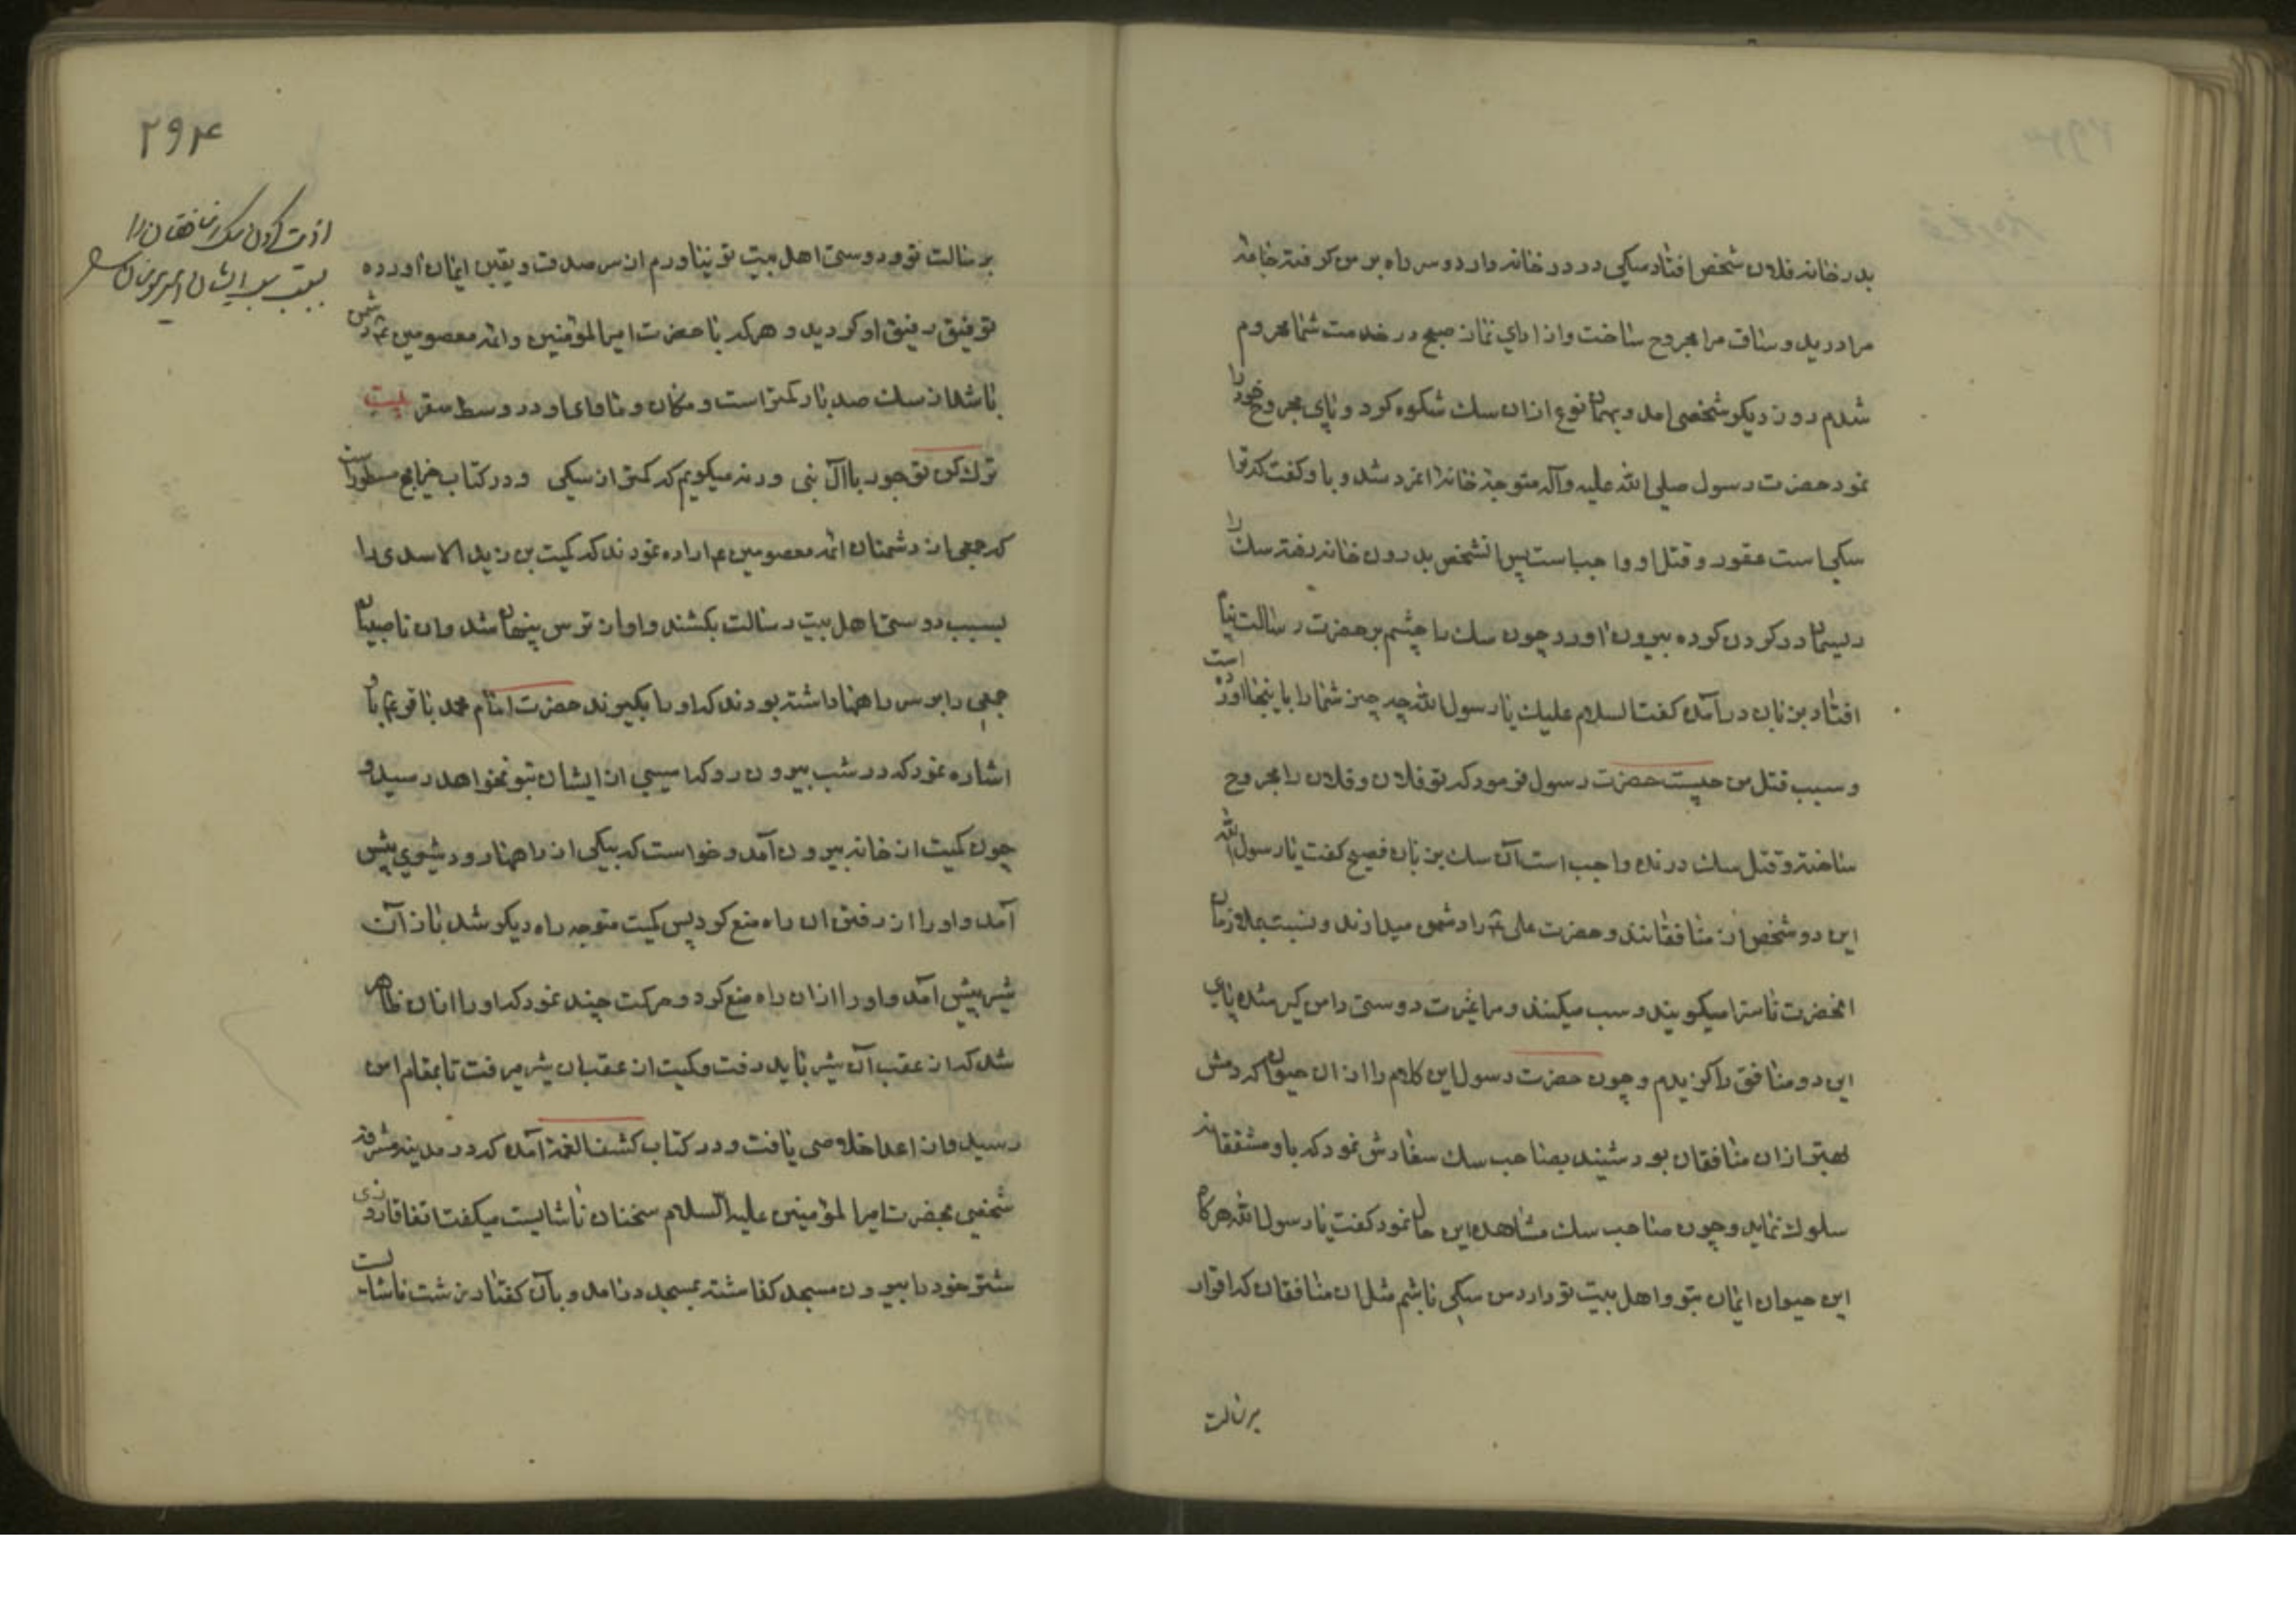 بدر خانه فلان شخص افتاد سکی در در خانه دارد و سر راه بر من کرفته جامهٔ
مرا درید و ساق مرا مجروح ساخت و از ادای نماز صبح در خدمت شما محروم
شدم روز دیکر شخصی امد و بهمان نوع از ان سک شکوه کرد و پای مجروح خود را
نمود حضرت رسول صلی الله علیه وآله متوجه خانهٔ انمرد شد و با و کفت که ترا
سکی است عقور و قتل او واجب است پس انشخص بدرون خانه رفته سک را
ریسمان در کردن کرده بیرون اورد چون سک را چشم بر حضرت رسالت پناه
افتاد بزبان در آمده کفت السلام علیک یا رسول الله چه چیز شما را باینجا اورده است
و سبب قتل من چیست حضرت رسول فرمود که تو فلان و فلان را مجروح
ساخته و قتل سک درنده واجب است آن سک بزبان فصیح کفت یا رسول الله
این دو شخص از منافقانند و حضرت علی ع را دشمن میدارند و نسبت بملازمان
انحضرت ناسزا میکویند و سب میکنند و مرا غیرت دوستی دامن کیر شده پای
این دو منافق را کزیدم و چون حضرت رسول این کلام را از ان حیوان که دمش
بهتر از ان منافقان بود شنید بصاحب سک سفارش نمود که با و مشفقانه
سلوک نماید و چون صاحب سک مشاهده این حال نمود کفت یا رسول الله هرکاه
این حیوان ایمان بتو و اهل بیت تو دارد من سکی باشم مثل ان منافقان که اقرار
برسالت
۲۹۴
برسالت تو و دوستی اهل بیت تو نیاورم از سر صدق و یقین ایمان اورده
توفیق رفیق او کردید و هرکه با حضرت امیر المؤمنین و ائمه معصومین ع دشمن
باشد از سک صد بار کمتر است و مکان و ماوای او در وسط سقر بیت
ترک کن تو جور با آل نبی ورنه میکویم که کمتر از سکی و در کتاب خرایج مسطور است
که جمعی از دشمنان ائمه معصومین ع اراده نمودند که کمیت بن زید الاسدی را
بسبب دوستی اهل بیت رسالت بکشند و او از ترس پنهان شد و ان ناصبیان
جمعی را بر سر راهها داشته بودند که او را بکیرند حضرت امام محمد باقر ع باو
اشاره نمود که در شب بیرون رو که اسیبی از ایشان بتو نخواهد رسید و
چون کمیت از خانه بیرون آمد و خواست که بیکی از راهها رود شیری پیش
آمد و او را از رفتن ان راه منع کرد پس کمیت متوجه راه دیکر شد باز آن
شیر پیش آمد و او را از ان راه منع کرد و حرکت چند نمود که او را از ان ظاهر
شد که از عقب آن شیر باید رفت و کمیت از عقب ان شیر میرفت تا بمقام امن
رسید و از اعدا خلاصی یافت و در کتاب کشف الغمة آمده که در مدینه مشرفه
شخصی بحضرت امیر المؤمنین علیه السلام سخنان ناشایست میکفت اتفاقا روزی
شتر خود را بیرون مسجد کذاشته بمسجد درامد و بآن کفتار زشت ناشایست